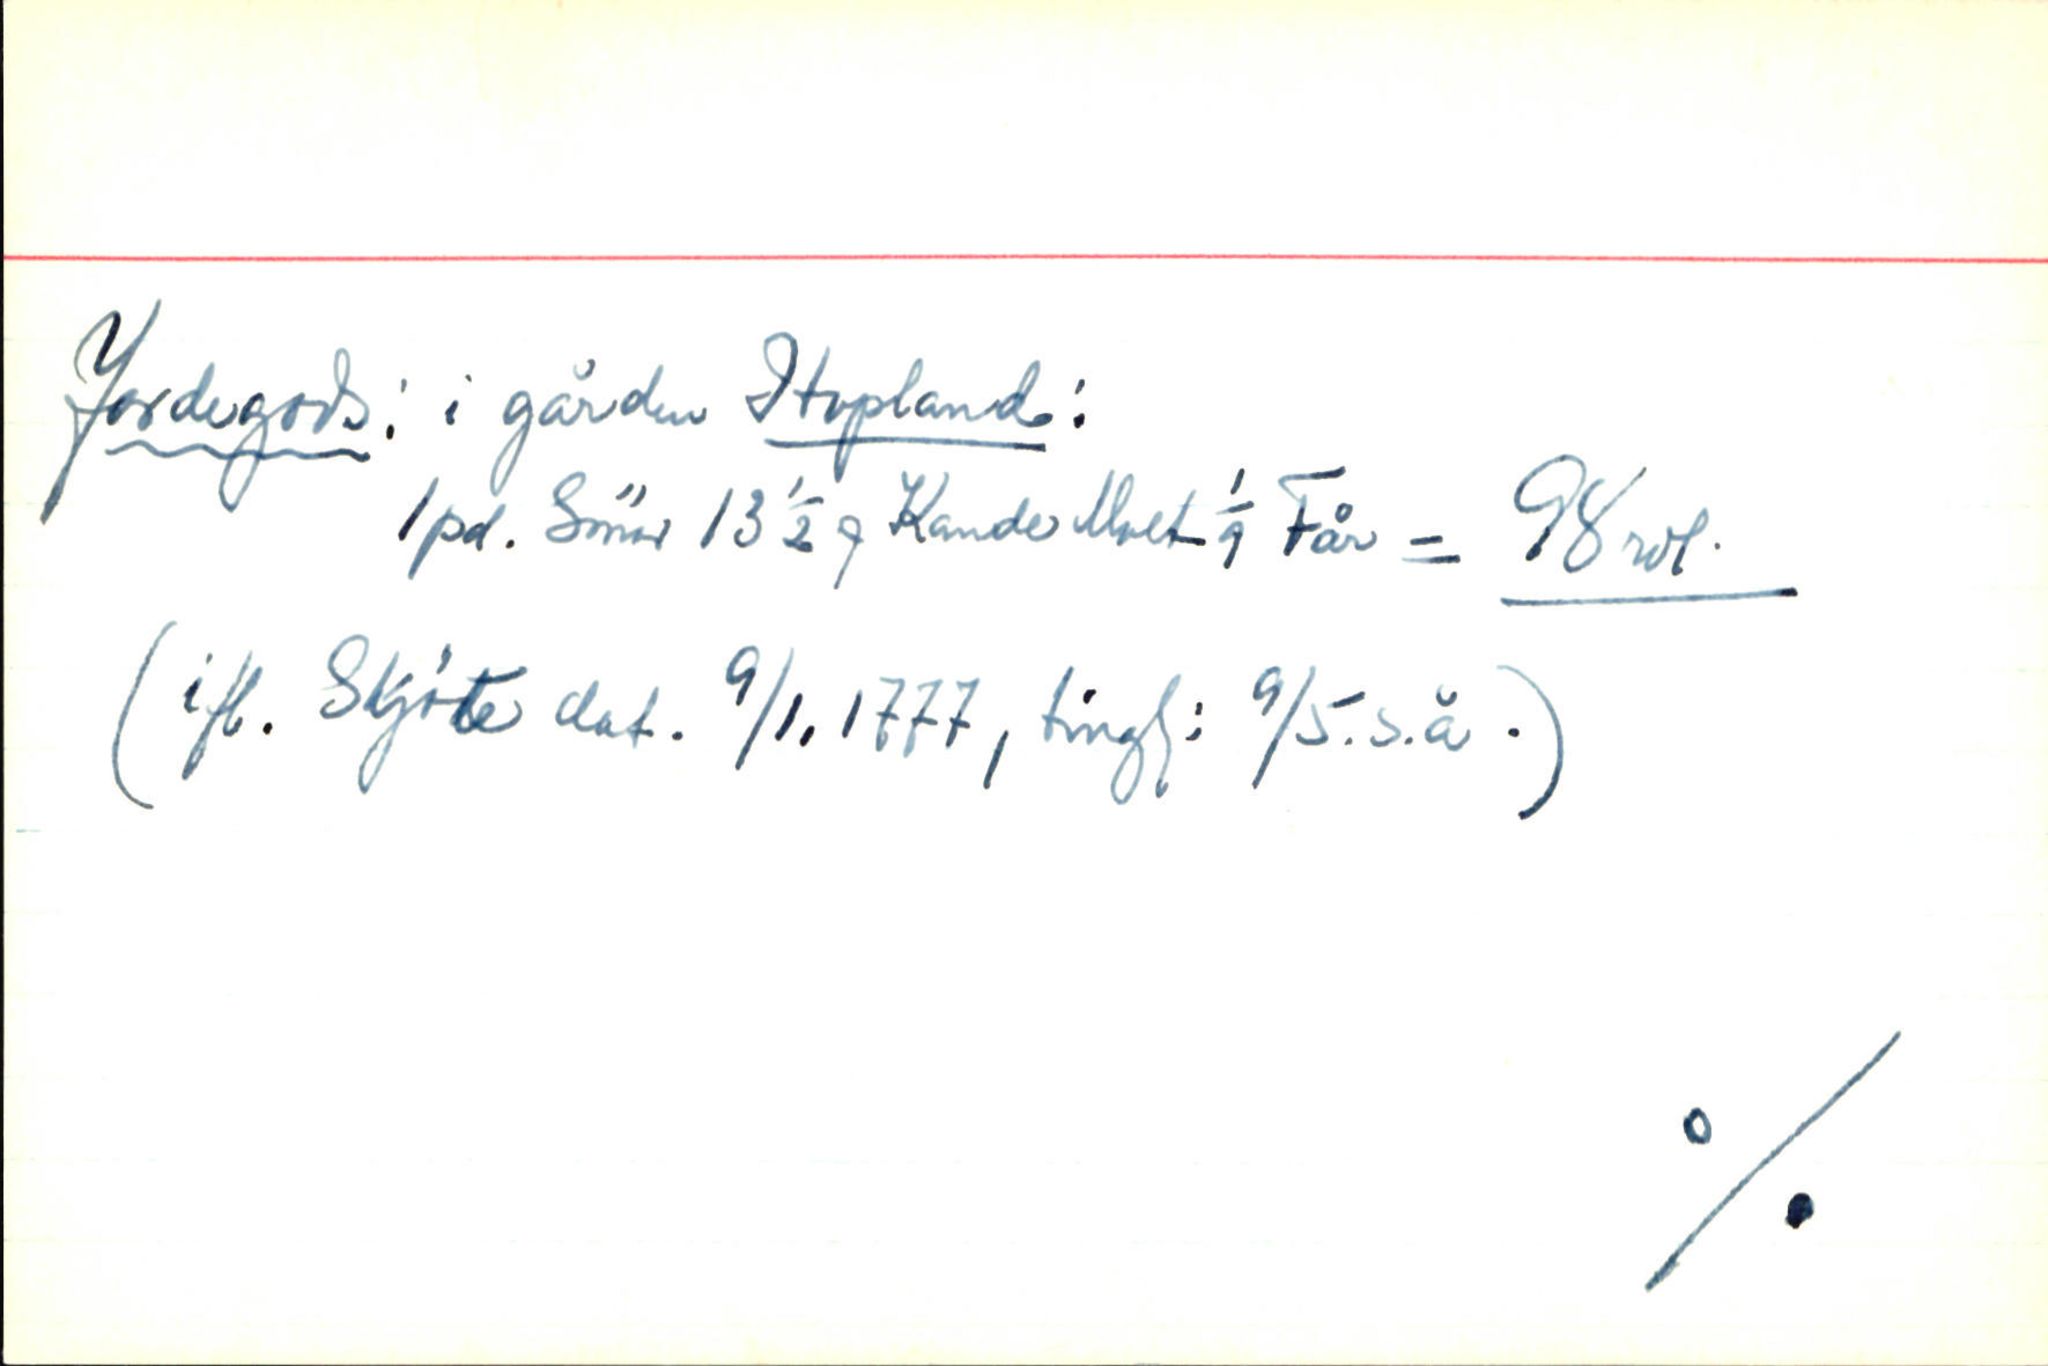 Jordegods: i gården Stopland:
1 pd. Smör 13 1/2 9 Kande Malt 1/9 Får = 98 rdl.
(ifl. Skjöte dat. 9/1. 1777, tingl: 9/5. s. å.)
%